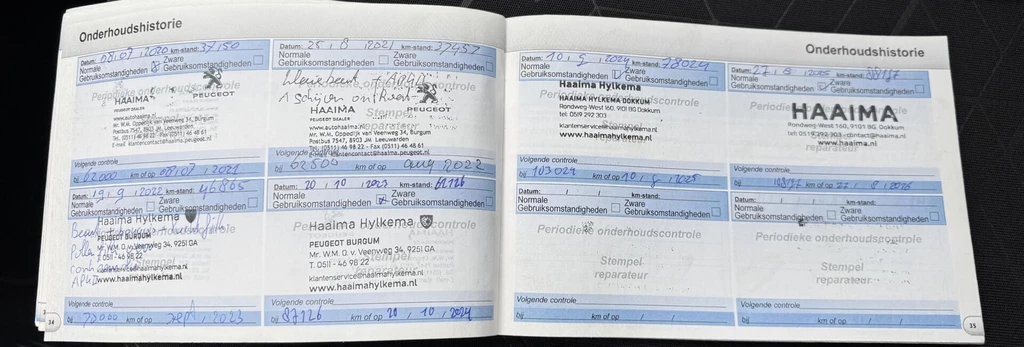 Onderhoudshistorie
Datum: 08, 07, 2020 km-stand: 37150
Normale
Gebruiksomstandigheden
Zware
Gebruiksomstandigheden
HAAIMA
PEUGEOT DEALER
PEUGEOT
www.autohaaima.nl
Mr. W.M. Oppedijk van Veenweg 34, Burgum
Postbus 7547, 8903 JM Leeuwarden
Volgende controle
bij 62000 km of op 08, 07, 2021
Datum: 25, 8, 2021 km-stand: 37457
Normale
Gebruiksomstandigheden
Zware
Gebruiksomstandigheden
kleine beurt + APK
HAAIMA
PEUGEOT DEALER
PEUGEOT
www.autohaaima.nl
Mr. W.M. Oppedijk van Veenweg 34, Burgum
Postbus 7547, 8903 JM Leeuwarden
Tel. (0511) 46 98 22 - Fax (0511) 46 48 61
E-mail: klantencontact@haaima.peugeot.nl
Volgende controle
bij 62500 km of op aug 2022
Datum: 19, 9, 2022 km-stand: 46865
Normale
Gebruiksomstandigheden
Zware
Gebruiksomstandigheden
Haaima Hylkema
PEUGEOT BURGUM
Mr. W.M. O. v. Veenweg 34, 9251 GA
T. 0511 - 46 98 22
klantenservice@haaimahylkema.nl
www.haaimahylkema.nl
Volgende controle
bij 70000 km of op sept, 2023
Datum: 20, 10, 2023 km-stand: 62126
Normale
Gebruiksomstandigheden
Zware
Gebruiksomstandigheden
Haaima Hylkema
PEUGEOT BURGUM
Mr. W.M. O. v. Veenweg 34, 9251 GA
T. 0511 - 46 98 22
klantenservice@haaimahylkema.nl
www.haaimahylkema.nl
Volgende controle
bij 87126 km of op 20, 10, 2024
34
Onderhoudshistorie
Datum: 10, 9, 2024 km-stand: 78024
Normale
Gebruiksomstandigheden
Zware
Gebruiksomstandigheden
Haaima Hylkema
Periodieke onderhoudscontrole
HAAIMA HYLKEMA DOKKUM
Rondweg-West 160, 9101 BG Dokkum
tel: 0519 292 303
klantenservice@haaimahylkema.nl
www.haaimahylkema.nl
Volgende controle
bij 103024 km of op 10, 9, 2025
Datum: 27, 8, 2025 km-stand:
Normale
Gebruiksomstandigheden
Zware
Gebruiksomstandigheden
HAAIMA
Rondweg West 160, 9101 BG Dokkum
tel: 0519 292 303 - contact@haaima.nl
www.haaima.nl
reparateur
Volgende controle
bij km of op 27, 8, 2026
Datum: / / km-stand:
Normale
Gebruiksomstandigheden
Zware
Gebruiksomstandigheden
Periodieke onderhoudscontrole
Stempel
reparateur
Volgende controle
bij km of op / /
Datum: / / km-stand:
Normale
Gebruiksomstandigheden
Zware
Gebruiksomstandigheden
Periodieke onderhoudscontrole
Stempel
reparateur
Volgende controle
bij km of op / /
35